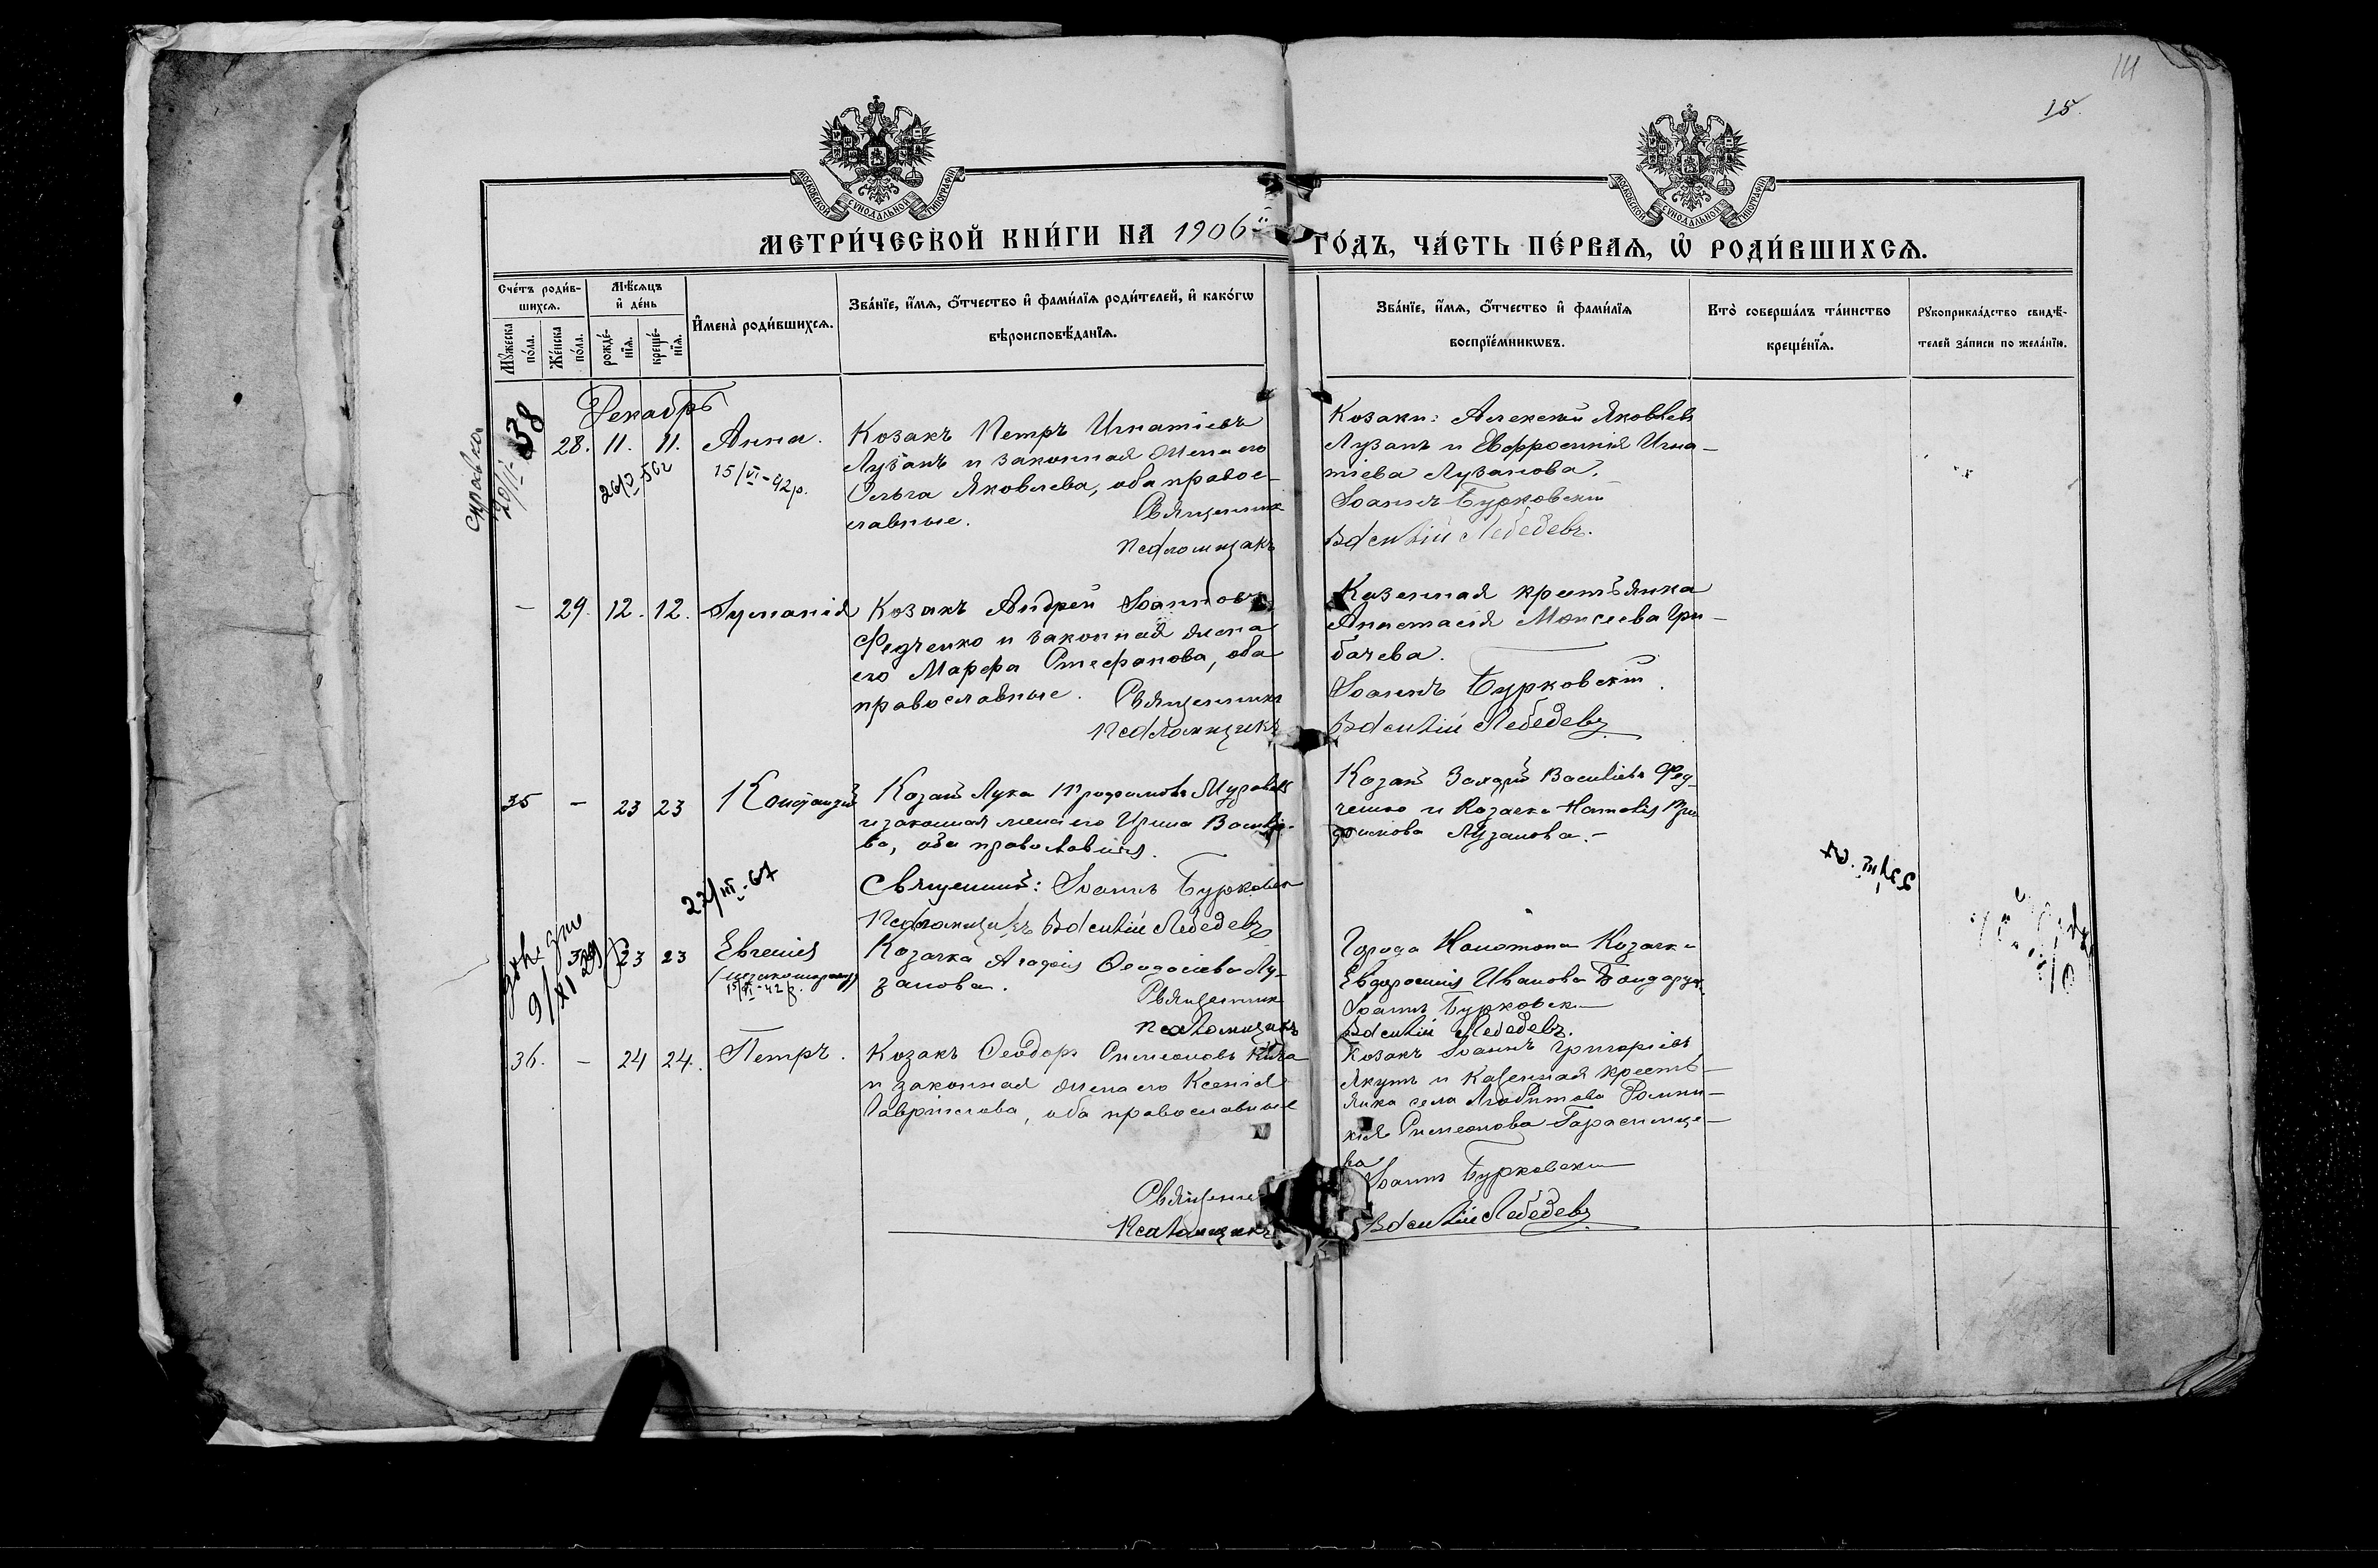 15
МОСКОВСКОЙ СѴНОДАЛЬНОЙ ТИПОГРАФІИ
МОСКОВСКОЙ СѴНОДАЛЬНОЙ ТИПОГРАФІИ
МЕТРИ́ЧЕСКОЙ КНИ́ГИ НА 1906й ГО́ДЪ, ЧА́СТЬ ПЕ́РВАЯ, Ѽ РОДИ́ВШИХСЯ.
Сче́тъ роди́в-
шихся.
Мꙋжеска по́ла.
Же́нска по́ла.
Мѣ́сяцъ и҆ де́нь
рожде́-нїя.
креще́-нїя.
И҆мена̀ роди́вшихся.
Зва́нїе, и҆́мя, ѻ҆́тчество и҆ фами́лїя роди́телей, и҆ како́гѡ
вѣроисповѣ́данїя.
Зва́нїе, и҆́мя, ѻ҆́тчество и҆ фами́лїя
воспрїе́мникѡвъ.
Кто̀ соверша́лъ та́инство
креще́нїя.
Рꙋкоприкла́дство свидѣ́-
телей за́писи по жела́нїю.
Декабрь
справка
38
28. 11. 11. Анна.
15/VI-42р.
Козакъ Петръ Игнатіевъ
Лузанъ и законная жена его
Ольга Яковлева, оба правос-
лавные. Священникъ
Псаломщикъ
Козаки: Алексій Яковлевъ
Лузанъ и Евфросинія Игна-
тіева Лузанова.
Іоаннъ Бурковскій
Василій Лебедевъ.
- 29. 12. 12.
Козакъ Андрей Іоанновъ
Федченко и законная жена
его Марфа Стефанова, оба
православные. Священникъ
Псаломщикъ
Казенная крестьянка
Анастасія Моисеева Гри-
бачева.
Іоаннъ Бурковскій.
Василій Лебедевъ
35 - 23 23
Козакъ Лука Трофимовъ
и законная жена его Ирина Василье-
ва, оба православные.
Священникъ: Іоаннъ Бурковскій
Псаломщикъ Василій Лебедевъ
Козакъ Василіевъ Фед-
ченко и Козачка Наталія
Лузанова.-
27/III-67
9/XI 29
23 23 Евгенія
(незаконорожд)
15/VI-42р.
Козачка Агафія Феодосіева Лу-
занова.
Священникъ
Псаломщикъ
Города Конотопа Козачка
Евфросинія Иванова
Іоаннъ Бурковскій
Василій Лебедевъ.
36. - 24 24. Петръ.
Козакъ Феодоръ Симеоновъ
и законная жена его Ксенія
Гаврилова, оба православные
Священникъ
Псаломщикъ
Козакъ Іоаннъ Григоріевъ
Якутъ и Казенная кресть-
янка села Любитова
Симеонова Гарасимце-
ва
Іоаннъ Бурковскій
Василій Лебедевъ